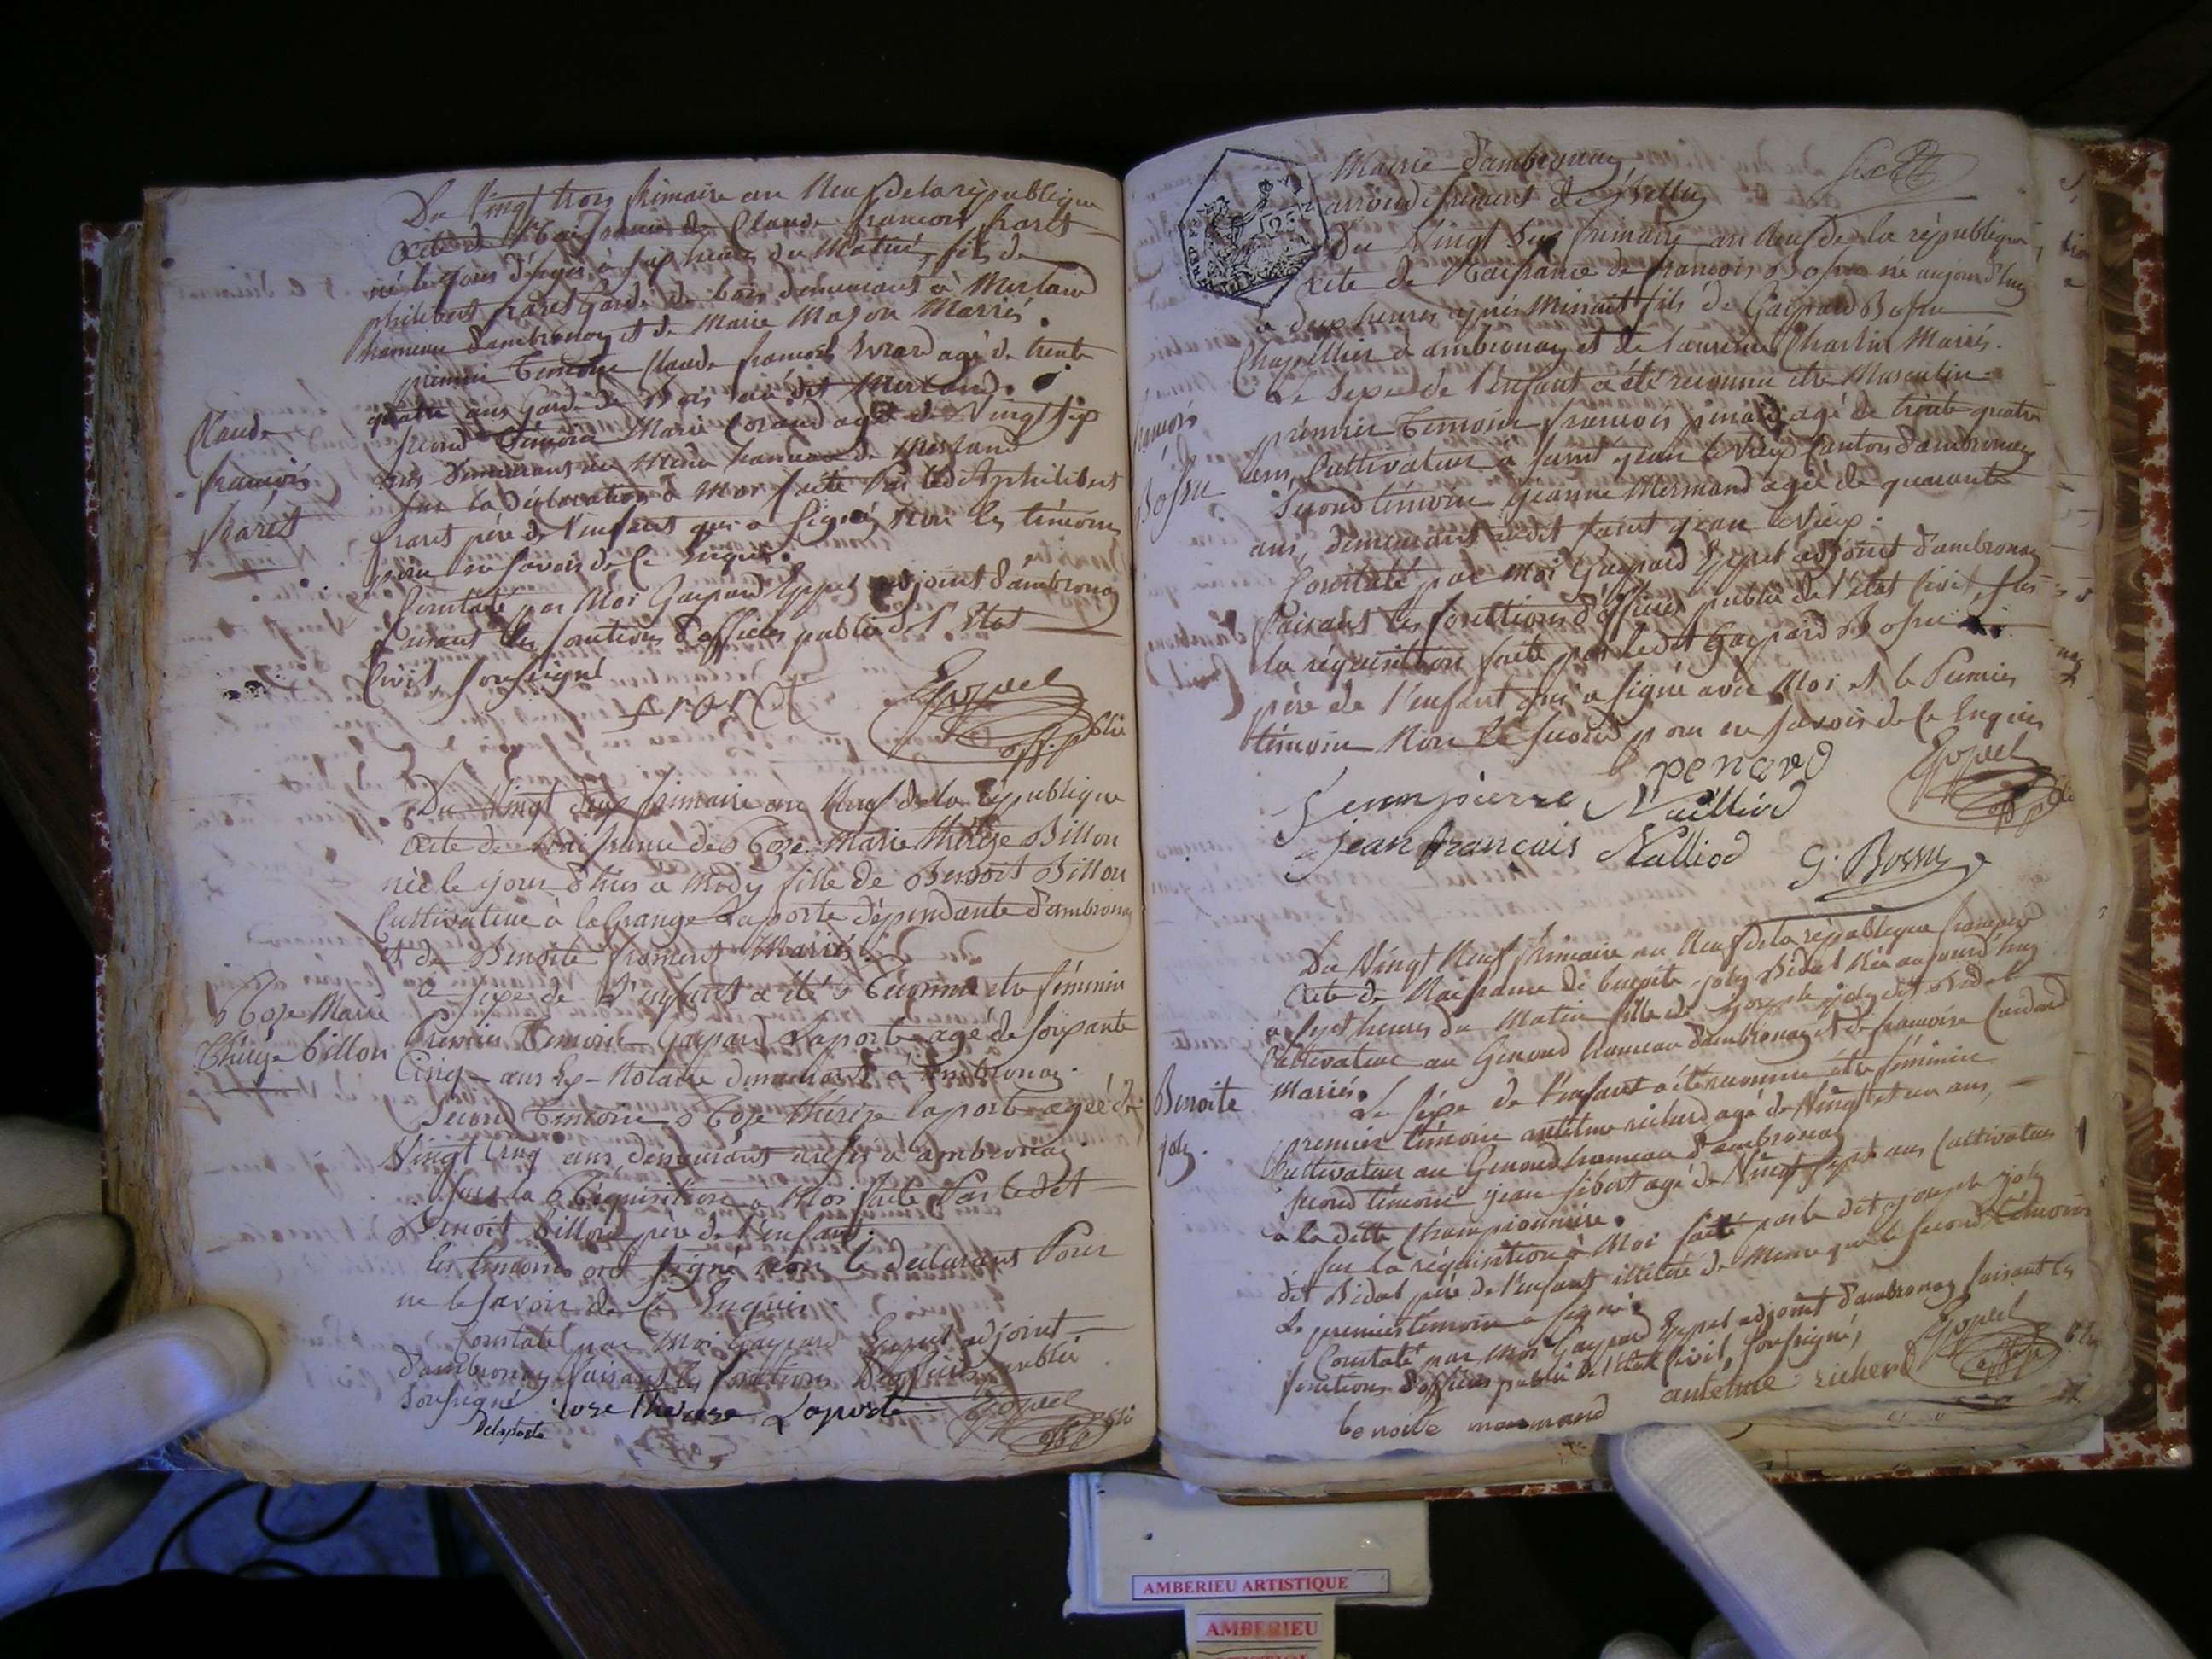 Du Vingt trois frimaire an Neuf de la république
Acte de Naissance de Claude francois fraret
né le jour d'hyer à sep heures du Matin, fils de
philibert fraret Garde de bois demeurant à Merland
hameau d'ambronay et de Marie Mazon Mariés.
premier Temoin Claude francois Evrard agé de trente
quatre ans Garde de Bois au dit Merland.
second Témoin Marie Corand agée de Vingt sep
ans demeurant au Même hameau de Merland
sur la Déclaration à Moi faite Par ledit philibert
fraret père de l'enfant qui a signé, non les témoins
pour ne savoir de ce Enquis.
Constaté par Moi Gaspard Eppel adjoint d'ambronay
faisant les fonctions d'officier public de l'Etat
Civil, soussigné
Claude
francois
fraret
fraret
Eppel
off. p blic
Du Vingt deux frimaire an Neuf de la république
Acte de Naissance de Roze Marie thérèze Billon
née le jour d'hier à Midy fille de Benoit Billon
Cultivateur à la Grange Laporte dépendante d'ambronay
et de Benoite froment Mariés.
Le sexe de l'enfant a été Reconnu etre féminin
Premier Temoin Gaspard Laporte agé de soixante
Cinq ans Ex-Notaire demeurant à Ambronay.
Second Temoin Roze thérèze laporte agée de
Vingt Cinq ans demeurant aussi à ambronay.
sur la Réquisition à Moi faite Par ledit
Benoit billon père de l'enfant.
les temoins ont signé non le declarant Pour
ne le savoir de ce Enquis.
Constaté par Moi Gaspard Eppel adjoint
d'ambronay faisant les fonctions d'officier public
Soussigné
Roze Marie
thérèze billon
rose therese Laporte
Delaporte
Eppel
off p blic
Mairie d'ambronay
arrondissement de Belley
Du Vingt Six frimaire an Neuf de la république
Acte de Naissance de francois Bossu né aujourd'huy
à deux heures après Minuit fils de Gaspard Bossu
Chapellier à ambronay et de Laurence Charlin Mariés.
Le Sexe de l'enfant a été reconnu etre Masculin.
premier Temoin francois pinard agé de trente quatre
ans, Cultivateur à saint jean le Vieux Canton d'ambronay
Second témoin jeanne Mermand agée de quarante
ans, demeurant audit saint jean le Vieux.
Constaté par Moi Gaspard Eppel adjoint d'ambronay
faisant les fonctions d'officier public de l'état Civil, sur
la réquisition faite par ledit Gaspard Bossu
père de l'enfant qui a signé avec Moi et le Premier
témoin Non le second pour ne savoir de ce Enquis
francois
Bossu
penard
Jeanpierre Nailliod
jean francois Nalliod
G. Bossu
Eppel
off p blic
Du Vingt Neuf frimaire an Neuf de la république française
Acte de Naissance de benoite joly Bidat Née aujourd'huy
à sept heures du Matin fille de joseph joly dit Bidat
Cultivateur au Genoud hameau d'ambronay et de francoise
Mariés.
Le sexe de l'enfant a été reconnu etre féminin
premier témoin antelme richerd agé de Vingt et un ans,
Cultivateur au Genoud hameau d'ambronay
second témoin jean sibert agé de Vingt sept ans Cultivateur
à la dette Championnière.
sur la réquisition à Moi faite par le dit joseph joly
dit Bidat père de l'enfant illitéré de Meme que le second témoin
Le premier témoin a signé
Constaté par Moi Gaspard Eppel adjoint d'ambronay faisant les
fonctions d'officier public de l'état Civil, soussigné,
Benoite
joly.
antelme richerd
benoite mormand
Eppel
off p blic
AMBERIEU ARTISTIQUE
AMBERIEU